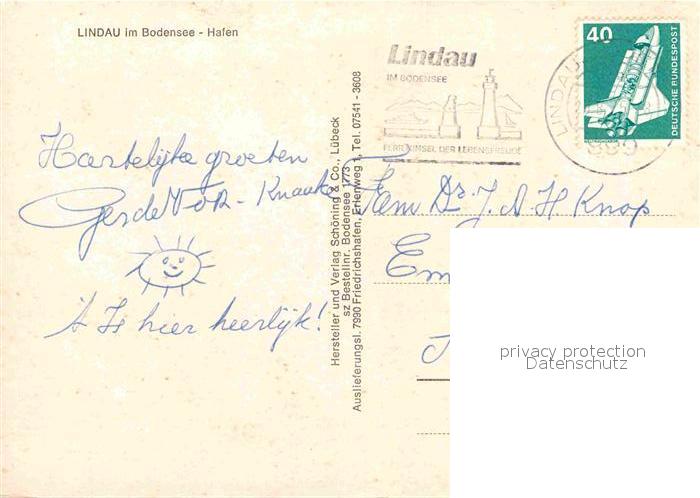 LINDAU im Bodensee - Hafen
Hartelijke groeten
Gerde Knauke
't Is hier heerlijk!
Hersteller und Verlag Schöning & Co., Lübeck
sz Bestellnr. Bodensee 1773
Auslieferungsl. 7990 Friedrichshafen, Erlenweg 1, Tel. 07541 - 3608
Lindau
IM BODENSEE
FERIENINSEL DER LEBENSFREUDE
LINDAU
40
DEUTSCHE BUNDESPOST
Fam Dr. J. A H Knop
Em
privacy protection
Datenschutz